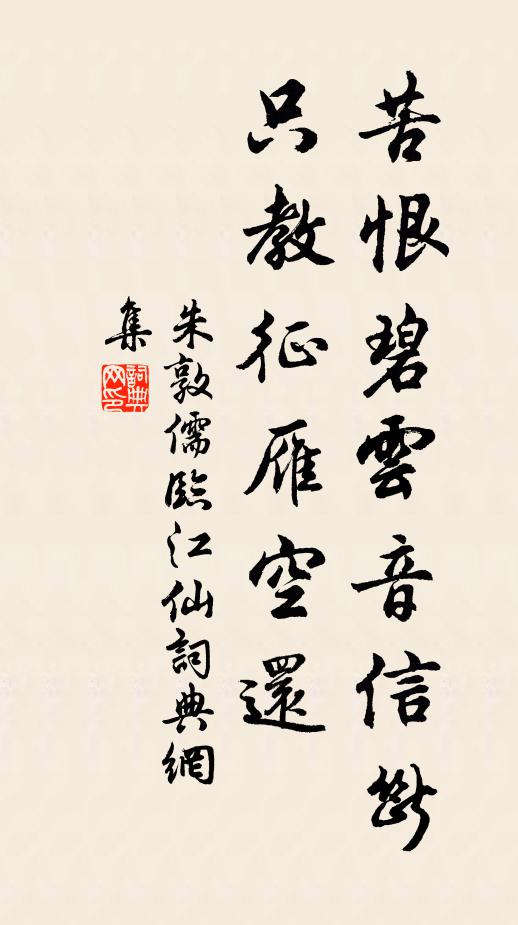 苦恨碧雲音信斷
只教征雁空還
朱敦儒臨江仙詞典網
集
詞典
网印